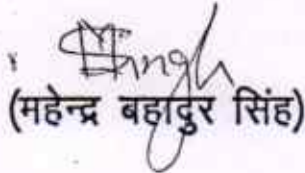 Singh
(महेन्द्र बहादुर सिंह)